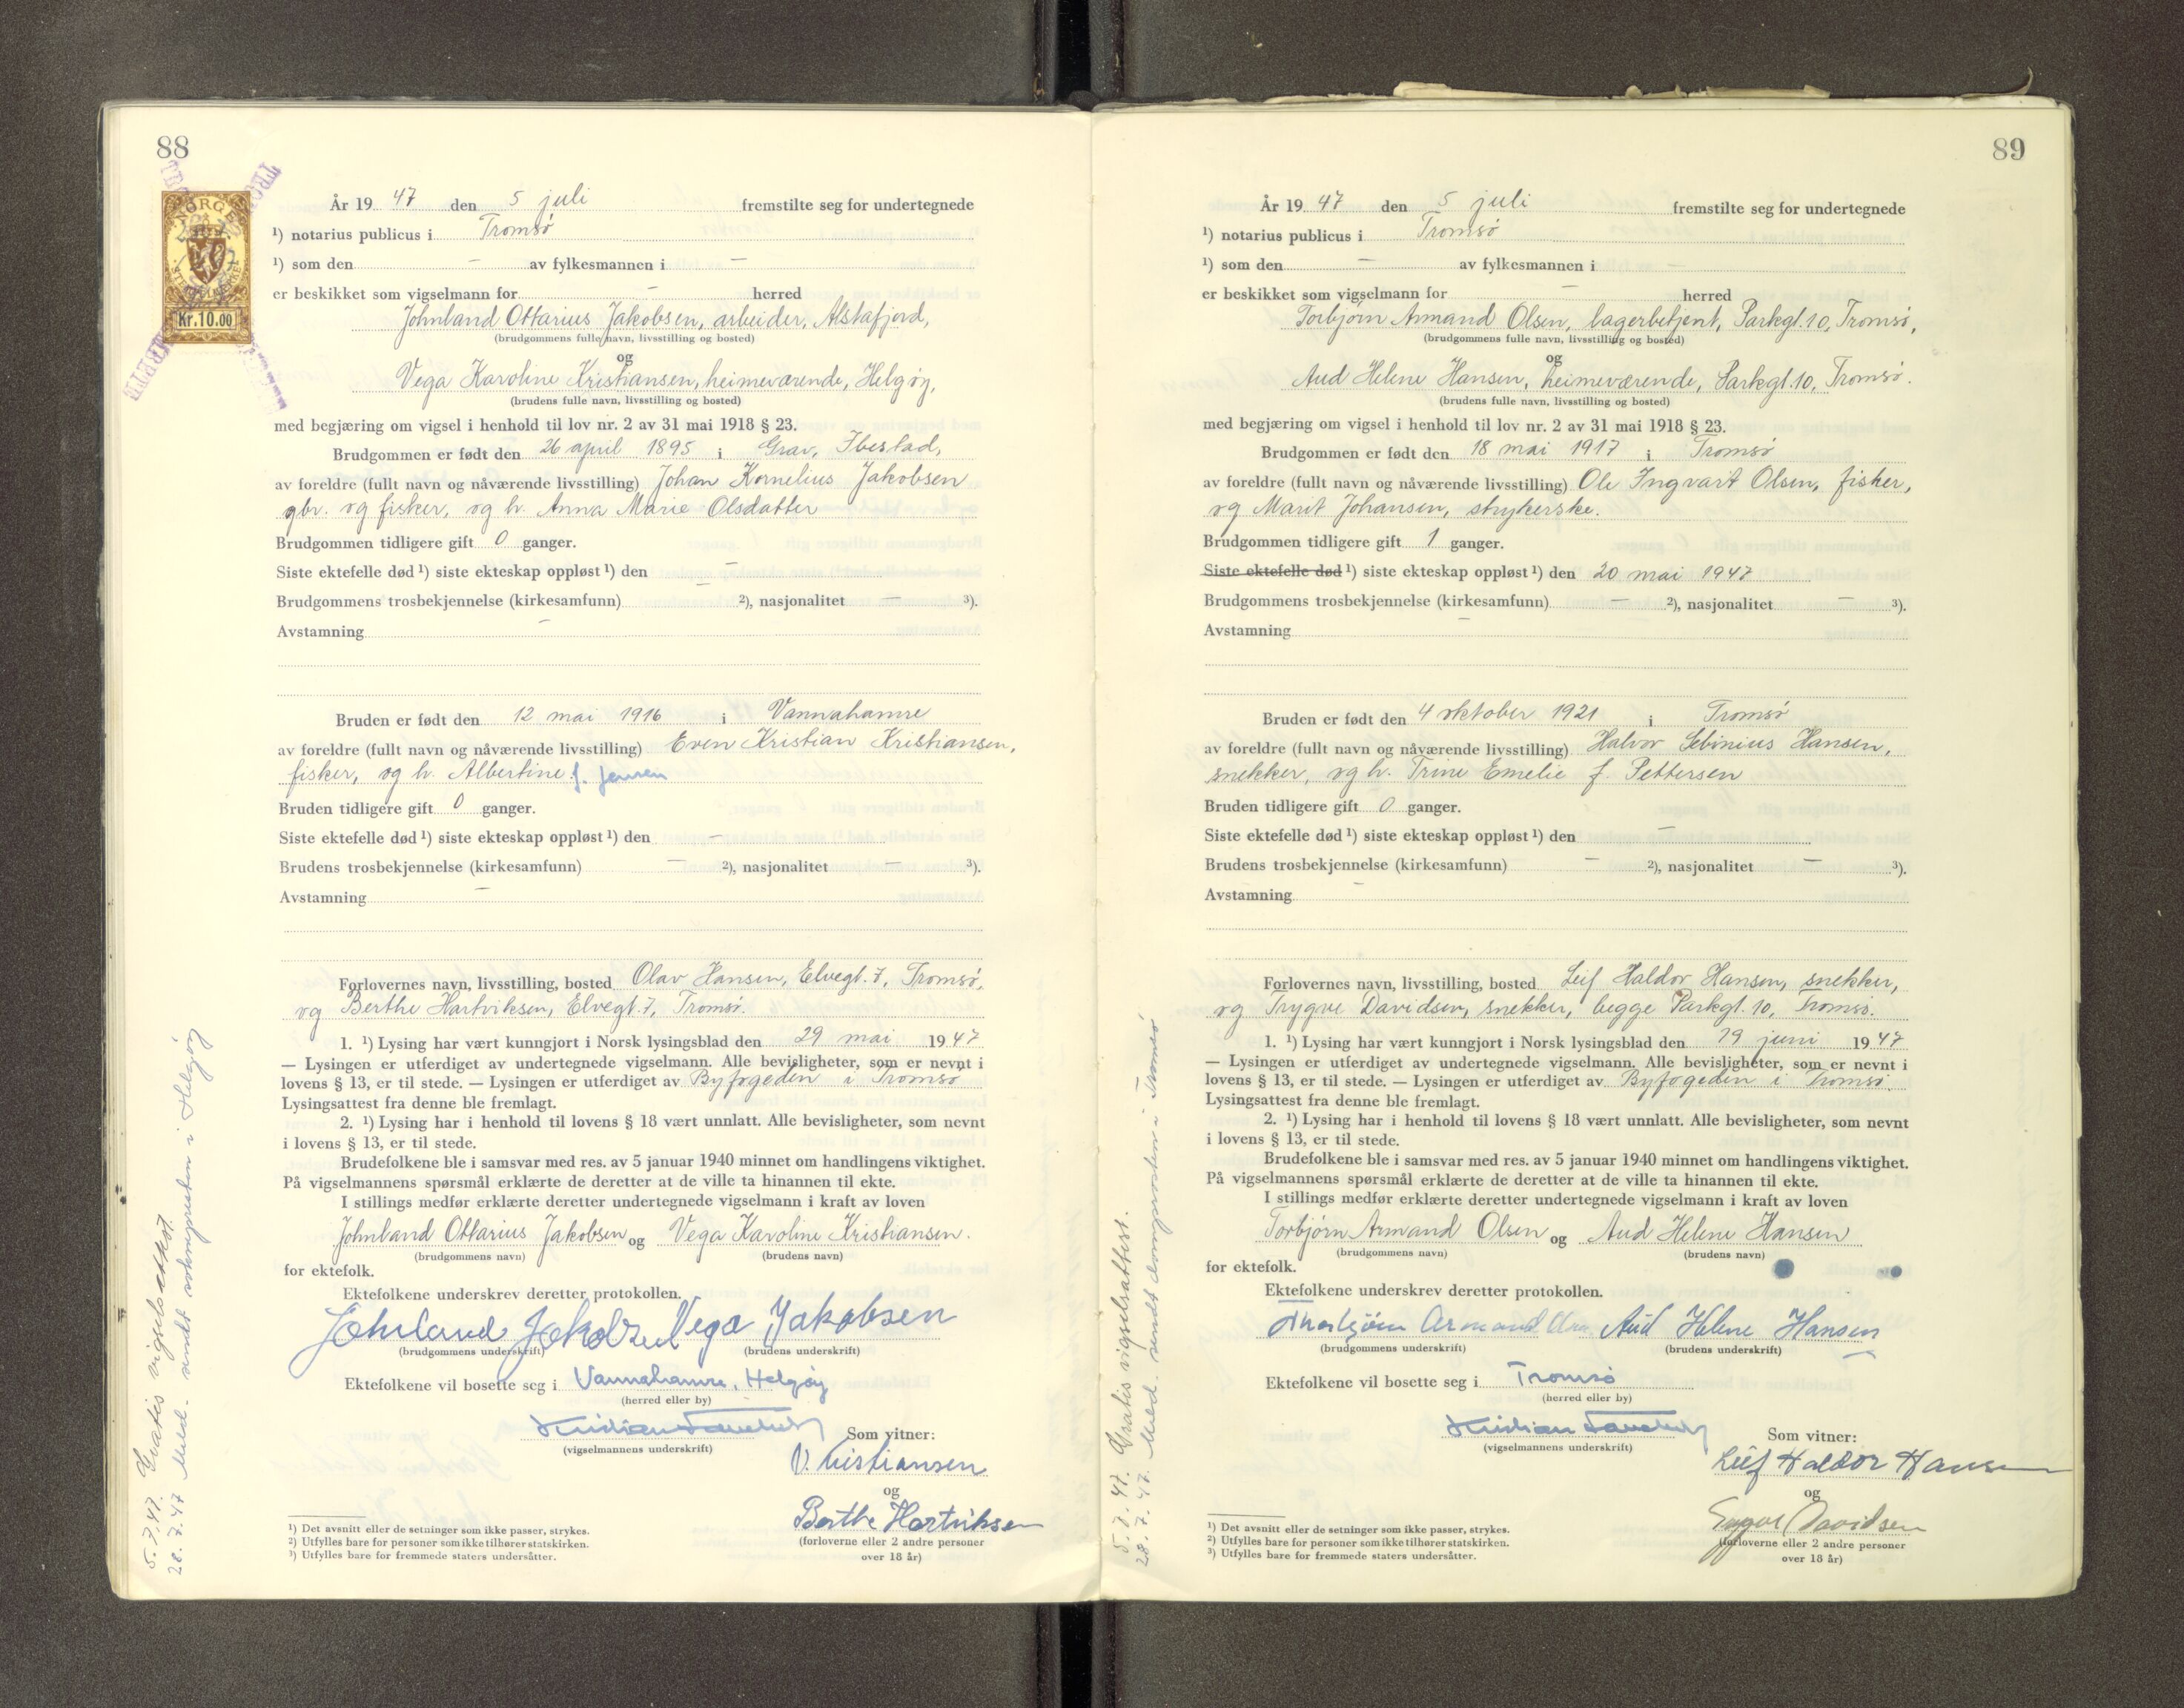 88
NORGE
Kr.10.00
År 19 47 den 5 juli fremstilte seg for undertegnede
¹) notarius publicus i Tromsø
¹) som den – av fylkesmannen i –
er beskikket som vigselmann for – herred
Johnland Ottarius Jakobsen, arbeider, Alstafjord,
(brudgommens fulle navn, livsstilling og bosted)
og
Vega Karoline Kristiansen, heimeværende, Helgøy,
(brudens fulle navn, livsstilling og bosted)
med begjæring om vigsel i henhold til lov nr. 2 av 31 mai 1918 § 23.
Brudgommen er født den 26 april 1895 i Grav, Ibestad,
av foreldre (fullt navn og nåværende livsstilling) Johan Kornelius Jakobsen
gbr. og fisker, og h. Anna Marie Olsdatter
Brudgommen tidligere gift 0 ganger.
Siste ektefelle død ¹) siste ekteskap oppløst ¹) den –
Brudgommens trosbekjennelse (kirkesamfunn) – ²), nasjonalitet – ³).
Avstamning –
Bruden er født den 12 mai 1916 i Vannahamre
av foreldre (fullt navn og nåværende livsstilling) Even Kristian Kristiansen,
fisker, og h. Albertine f. Jensen
Bruden tidligere gift 0 ganger.
Siste ektefelle død ¹) siste ekteskap oppløst ¹) den –
Brudens trosbekjennelse (kirkesamfunn) – ²), nasjonalitet – ³).
Avstamning –
Forlovernes navn, livsstilling, bosted Olav Hansen, Elvegt. 7, Tromsø,
og Berthe Hartviksen, Elvegt. 7, Tromsø.
1. ¹) Lysing har vært kunngjort i Norsk lysingsblad den 29 mai 19 47
— Lysingen er utferdiget av undertegnede vigselmann. Alle bevisligheter, som er nevnt i
lovens § 13, er til stede. — Lysingen er utferdiget av Byfogeden i Tromsø
Lysingsattest fra denne ble fremlagt.
2. ¹) Lysing har i henhold til lovens § 18 vært unnlatt. Alle bevisligheter, som nevnt
i lovens § 13, er til stede.
Brudefolkene ble i samsvar med res. av 5 januar 1940 minnet om handlingens viktighet.
På vigselmannens spørsmål erklærte de deretter at de ville ta hinannen til ekte.
I stillings medfør erklærte deretter undertegnede vigselmann i kraft av loven
Johnland Ottarius Jakobsen og Vega Karoline Kristiansen.
(brudgommens navn) (brudens navn)
for ektefolk.
Ektefolkene underskrev deretter protokollen.
Johnland Jakobsen Vega Jakobsen
(brudgommens underskrift) (brudens underskrift)
Ektefolkene vil bosette seg i Vannahamre, Helgøy
(herred eller by)
(vigselmannens underskrift)
Som vitner:
V. Kristiansen
og
Berthe Hartviksen
(forloverne eller 2 andre personer
over 18 år)
¹) Det avsnitt eller de setninger som ikke passer, strykes.
²) Utfylles bare for personer som ikke tilhører statskirken.
³) Utfylles bare for fremmede staters undersåtter.
5.7.47. Gratis vigselsattest.
28.7.47 Meld. sendt soknepresten i Helgøy
89
År 19 47 den 5 juli fremstilte seg for undertegnede
¹) notarius publicus i Tromsø
¹) som den – av fylkesmannen i –
er beskikket som vigselmann for – herred
Torbjørn Armand Olsen, lagerbetjent, Parkgt. 10, Tromsø,
(brudgommens fulle navn, livsstilling og bosted)
og
Aud Helene Hansen, heimeværende, Parkgt. 10, Tromsø.
(brudens fulle navn, livsstilling og bosted)
med begjæring om vigsel i henhold til lov nr. 2 av 31 mai 1918 § 23.
Brudgommen er født den 18 mai 1917 i Tromsø
av foreldre (fullt navn og nåværende livsstilling) Ole Ingvart Olsen, fisker,
og Marit Johansen, strykerske.
Brudgommen tidligere gift 1 ganger.
Siste ektefelle død ¹) siste ekteskap oppløst ¹) den 20 mai 1947
Brudgommens trosbekjennelse (kirkesamfunn) – ²), nasjonalitet – ³).
Avstamning –
Bruden er født den 4 oktober 1921 i Tromsø
av foreldre (fullt navn og nåværende livsstilling) Halvor Sebinius Hansen,
snekker, og h. Trine Emelie f. Pettersen
Bruden tidligere gift 0 ganger.
Siste ektefelle død ¹) siste ekteskap oppløst ¹) den –
Brudens trosbekjennelse (kirkesamfunn) – ²), nasjonalitet – ³).
Avstamning –
Forlovernes navn, livsstilling, bosted Leif Haldor Hansen, snekker,
og Trygve Davidsen, snekker, begge Parkgt. 10, Tromsø.
1. ¹) Lysing har vært kunngjort i Norsk lysingsblad den 19 juni 19 47
— Lysingen er utferdiget av undertegnede vigselmann. Alle bevisligheter, som er nevnt i
lovens § 13, er til stede. — Lysingen er utferdiget av Byfogeden i Tromsø.
Lysingsattest fra denne ble fremlagt.
2. ¹) Lysing har i henhold til lovens § 18 vært unnlatt. Alle bevisligheter, som nevnt
i lovens § 13, er til stede.
Brudefolkene ble i samsvar med res. av 5 januar 1940 minnet om handlingens viktighet.
På vigselmannens spørsmål erklærte de deretter at de ville ta hinannen til ekte.
I stillings medfør erklærte deretter undertegnede vigselmann i kraft av loven
Torbjørn Armand Olsen og Aud Helene Hansen
(brudgommens navn) (brudens navn)
for ektefolk.
Ektefolkene underskrev deretter protokollen.
Thorbjørn Armand Aud Helene Hansen
(brudgommens underskrift) (brudens underskrift)
Ektefolkene vil bosette seg i Tromsø
(herred eller by)
(vigselmannens underskrift)
Som vitner:
Leif Haldor Hansen
og
Davidsen
(forloverne eller 2 andre personer
over 18 år)
¹) Det avsnitt eller de setninger som ikke passer, strykes.
²) Utfylles bare for personer som ikke tilhører statskirken.
³) Utfylles bare for fremmede staters undersåtter.
5.7.47. Gratis vigselsattest.
28.7.47. Meld. sendt domprosten i Tromsø